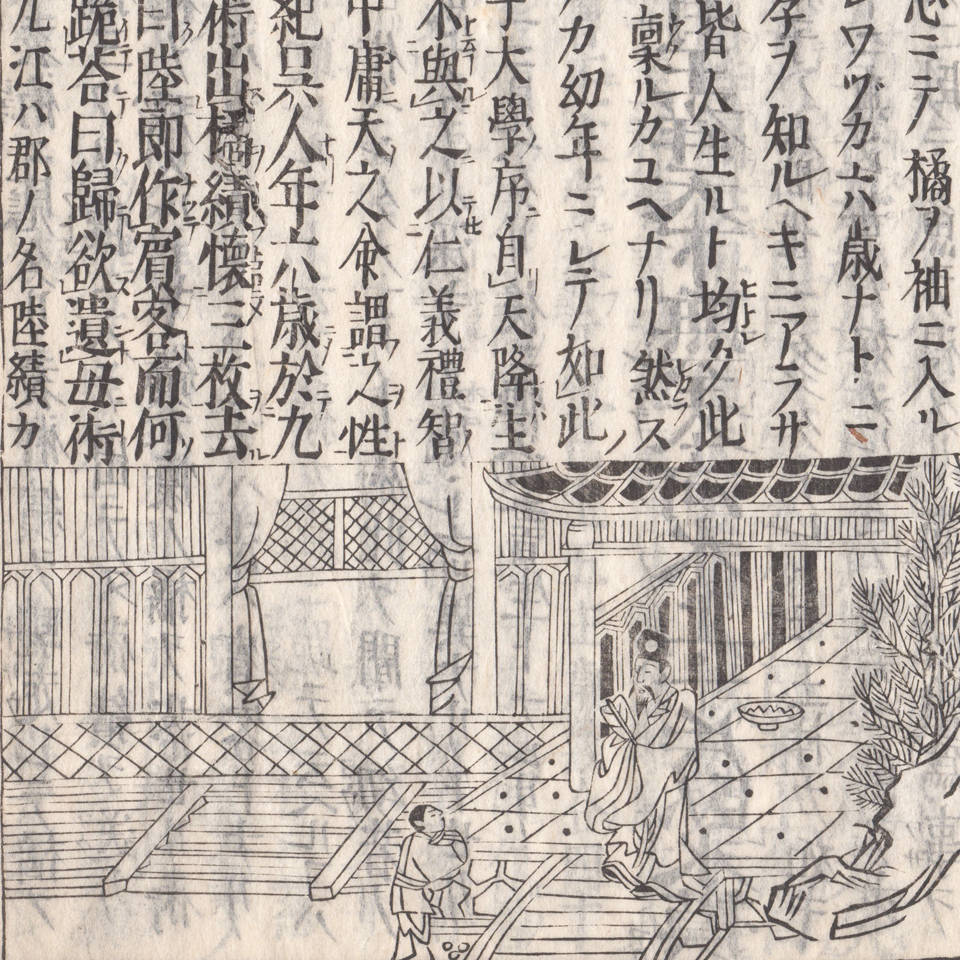 ミテ橘ヲ袖ニ入ル
ワツカ六ハ歳ナト・ニ
孝ヲ知ルヘキニアラサ
皆人生ルト均ク此
稟ルカユヘナリ然ス
カ幼年ニレテ如此
大學序自天降生
不與之以仁義禮智
中庸天之命謂之性
紀只人年六歳於九
術出橘績懐三枚去
曰陸郎作賓客而何
跪荅曰歸欲遺母術
九江ハ郡ノ名陸績カ